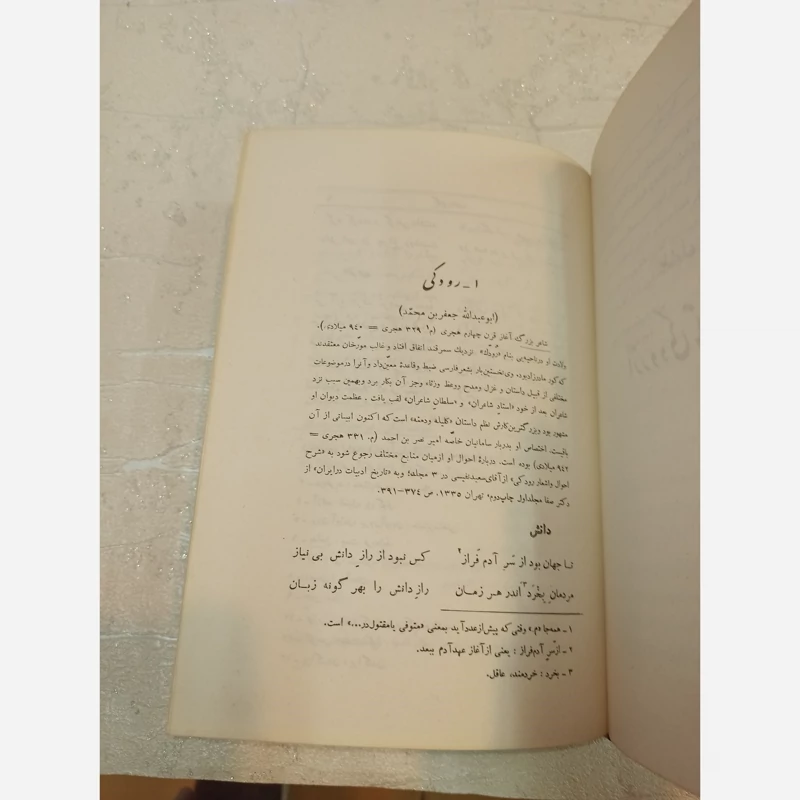 ۱ - رودکی
(ابوعبدالله جعفر بن محمّد)
شاعر بزرگ آغاز قرن چهارم هجری (م۱ ۳۲۹ هجری = ۹۴۰ میلادی).
ولادت او در ناحیه‌یی بنام «رُودَك» نزدیك سمرقند اتفاق افتاد و غالب مورّخان معتقدند
که کور مادرزاد بود. وی نخستین بار بشعر فارسی ضبط و قاعدهٔ معیّن داد و آنرا در موضوعات
مختلفی از قبیل داستان و غزل و مدح و وعظ و رثاء و جز آن بکار برد و بهمین سبب نزد
شاعران بعد از خود «استاد شاعران» و «سلطان شاعران» لقب یافت. عظمت دیوان او
مشهور بود و بزرگترین کارش نظم داستان «کلیله و دمنه» است که اکنون ابیاتی از آن
باقیست. اختصاص او بدربار سامانیان خاصّه امیر نصر بن احمد (م. ۳۳۱ هجری =
۹۴۲ میلادی) بوده است. دربارهٔ احوال او از میان منابع مختلف رجوع شود به «شرح
احوال و اشعار رودکی» از آقای سعید نفیسی در ۳ مجلد؛ و به «تاریخ ادبیات در ایران» از
دکتر صفا مجلد اول چاپ دوم، تهران ۱۳۳۵، ص ۳۷۴-۳۹۱.
دانش
تا جهان بود از سَرِ آدم فراز۲ کس نبود از رازِ دانش بی نیاز
مردمانِ بِخْرَد۳ اندر هر زمان رازِ دانش را بهر گونه زبان
۱ - همه‌جا «م» وقتی که پیش از عدد آید بمعنی «متوفی یا مقتول در...» است.
۲ - از سرِ آدم فراز : یعنی از آغاز عهد آدم ببعد.
۳ - بخرد : خردمند، عاقل.